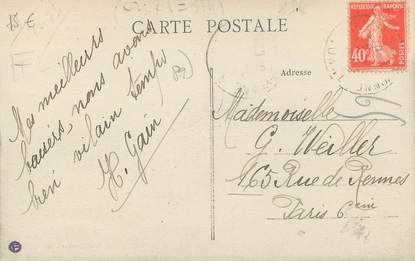 15 €
CARTE POSTALE
Adresse
REPUBLIQUE FRANÇAISE
40c
POSTES
Mes meilleurs
baisers, nous avons
bien vilain temps
H. Gain
Mademoiselle
G. Weiller
165 Rue de Rennes
Paris 6eme